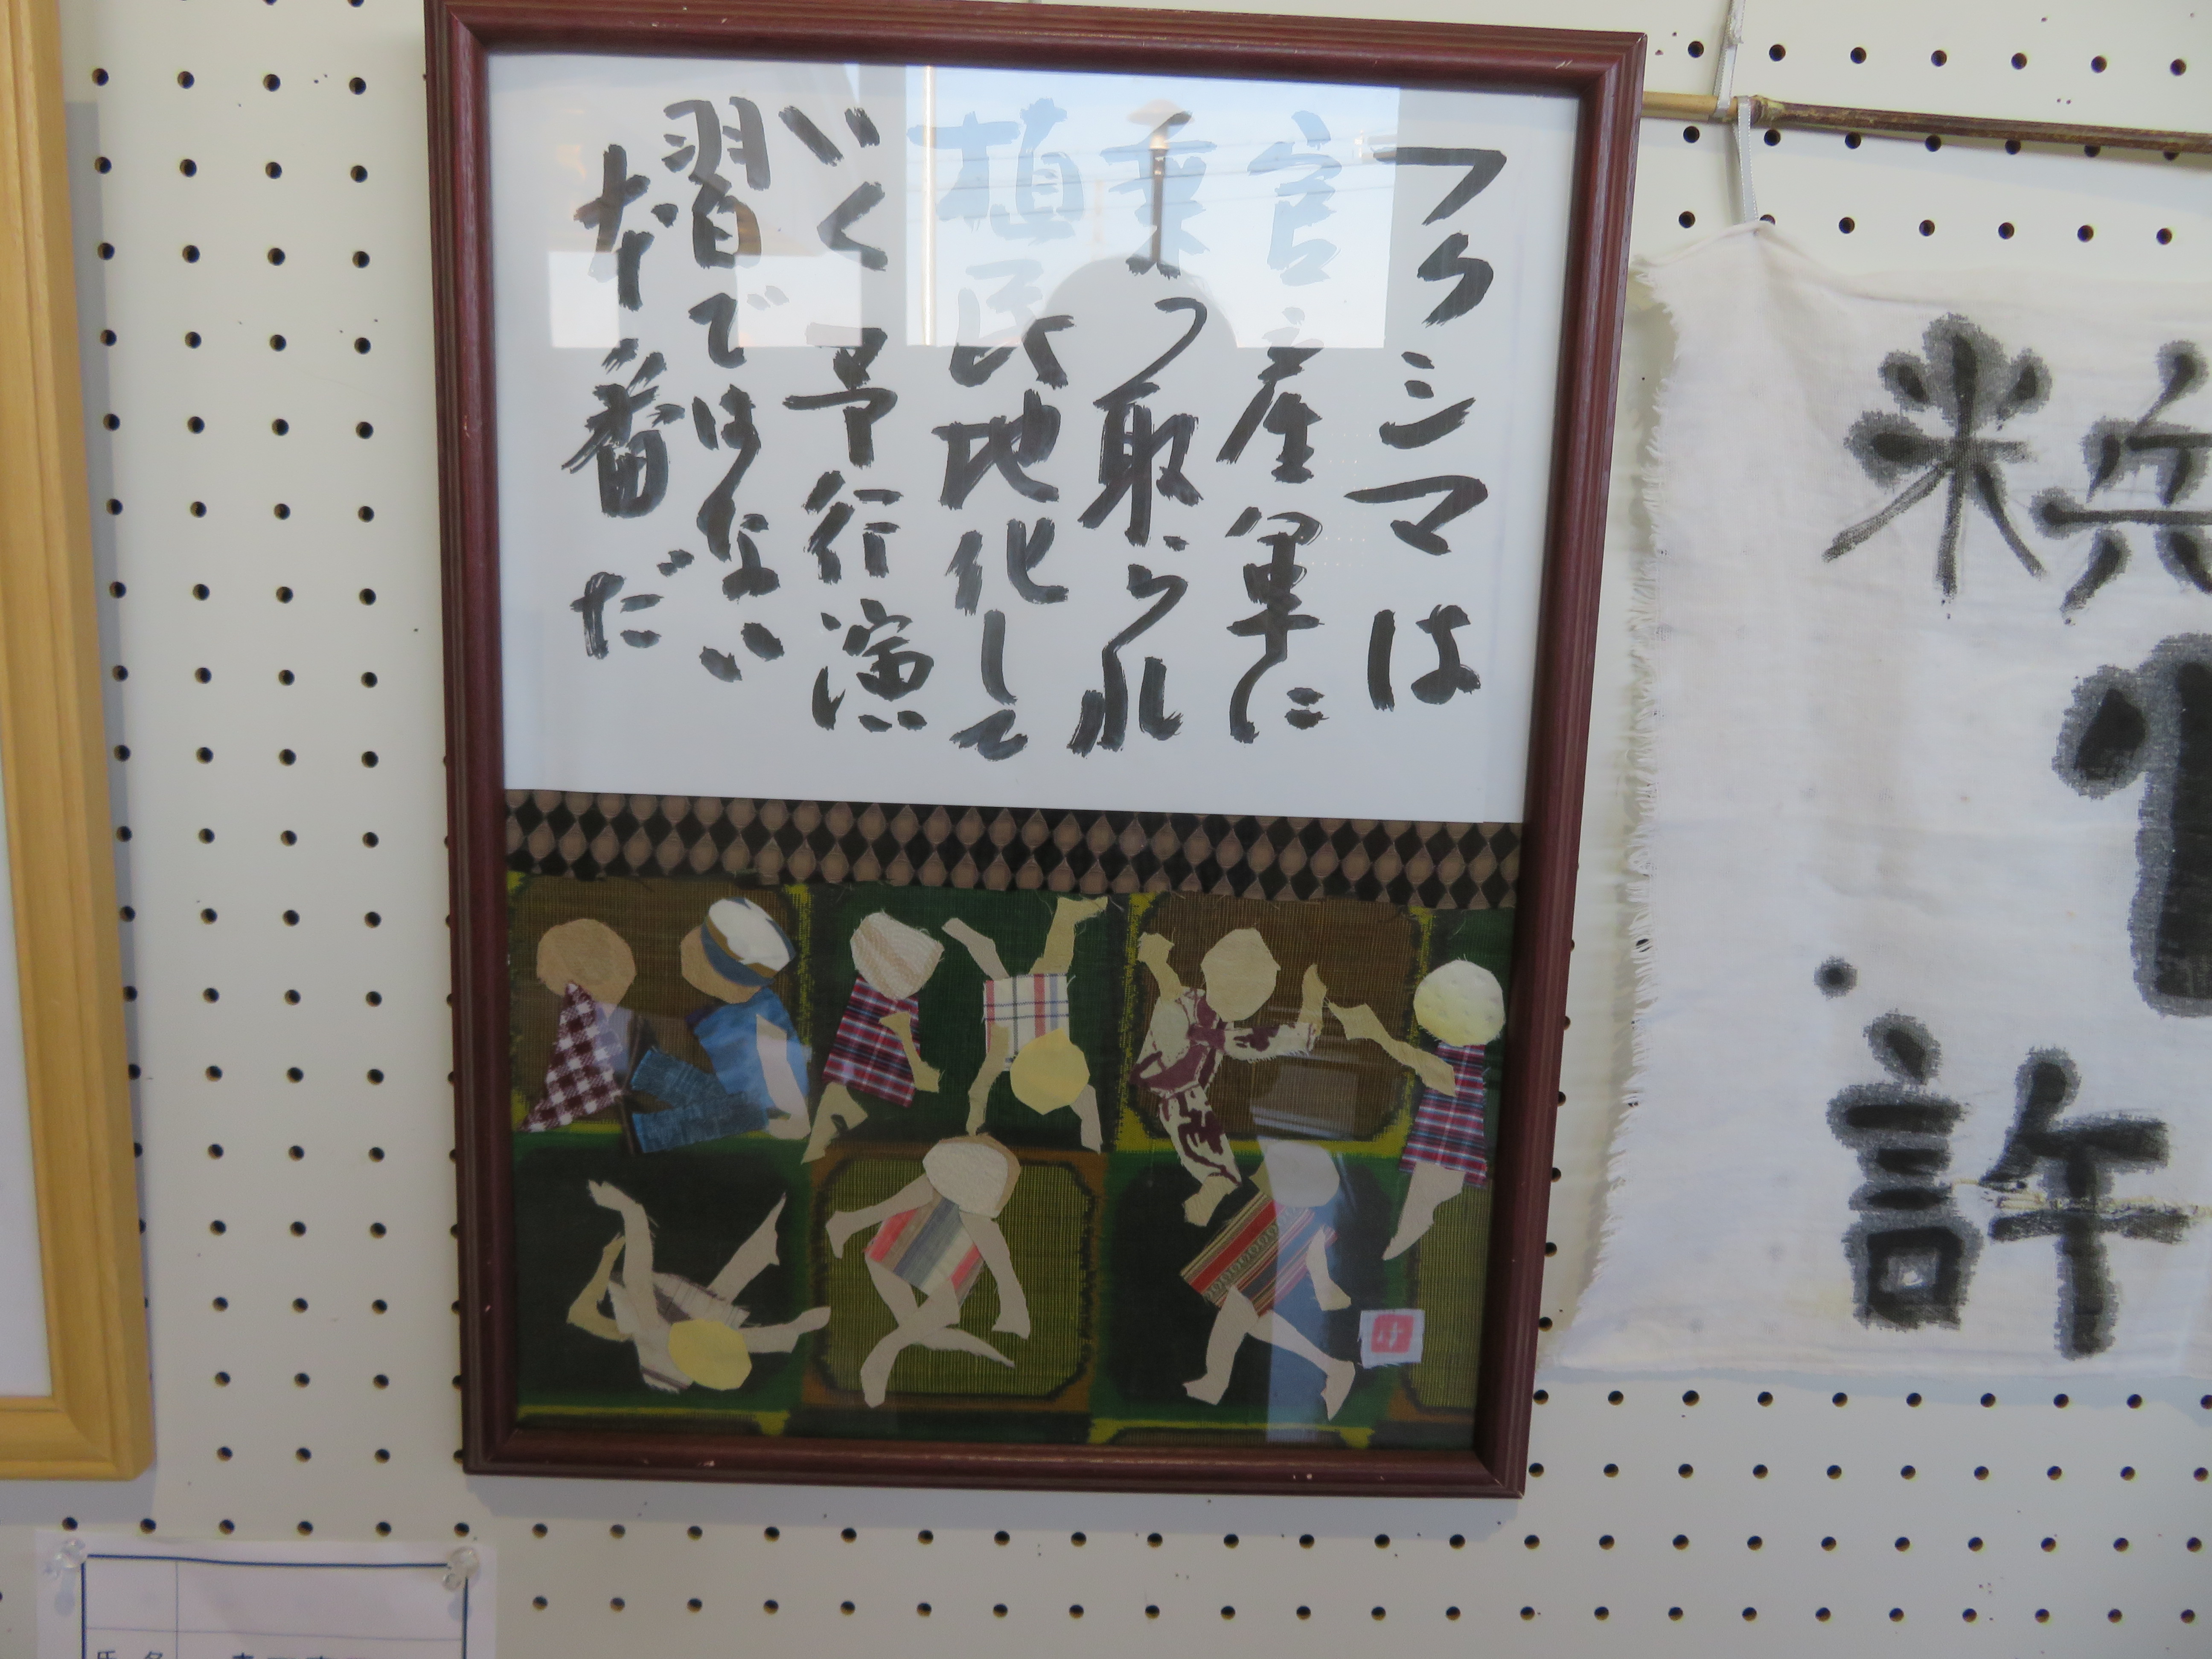 フクシマは
官産軍に
乗っ取られ
植民地化して
いく 予行演
習ではない
本番だ
兵
米
許
氏名